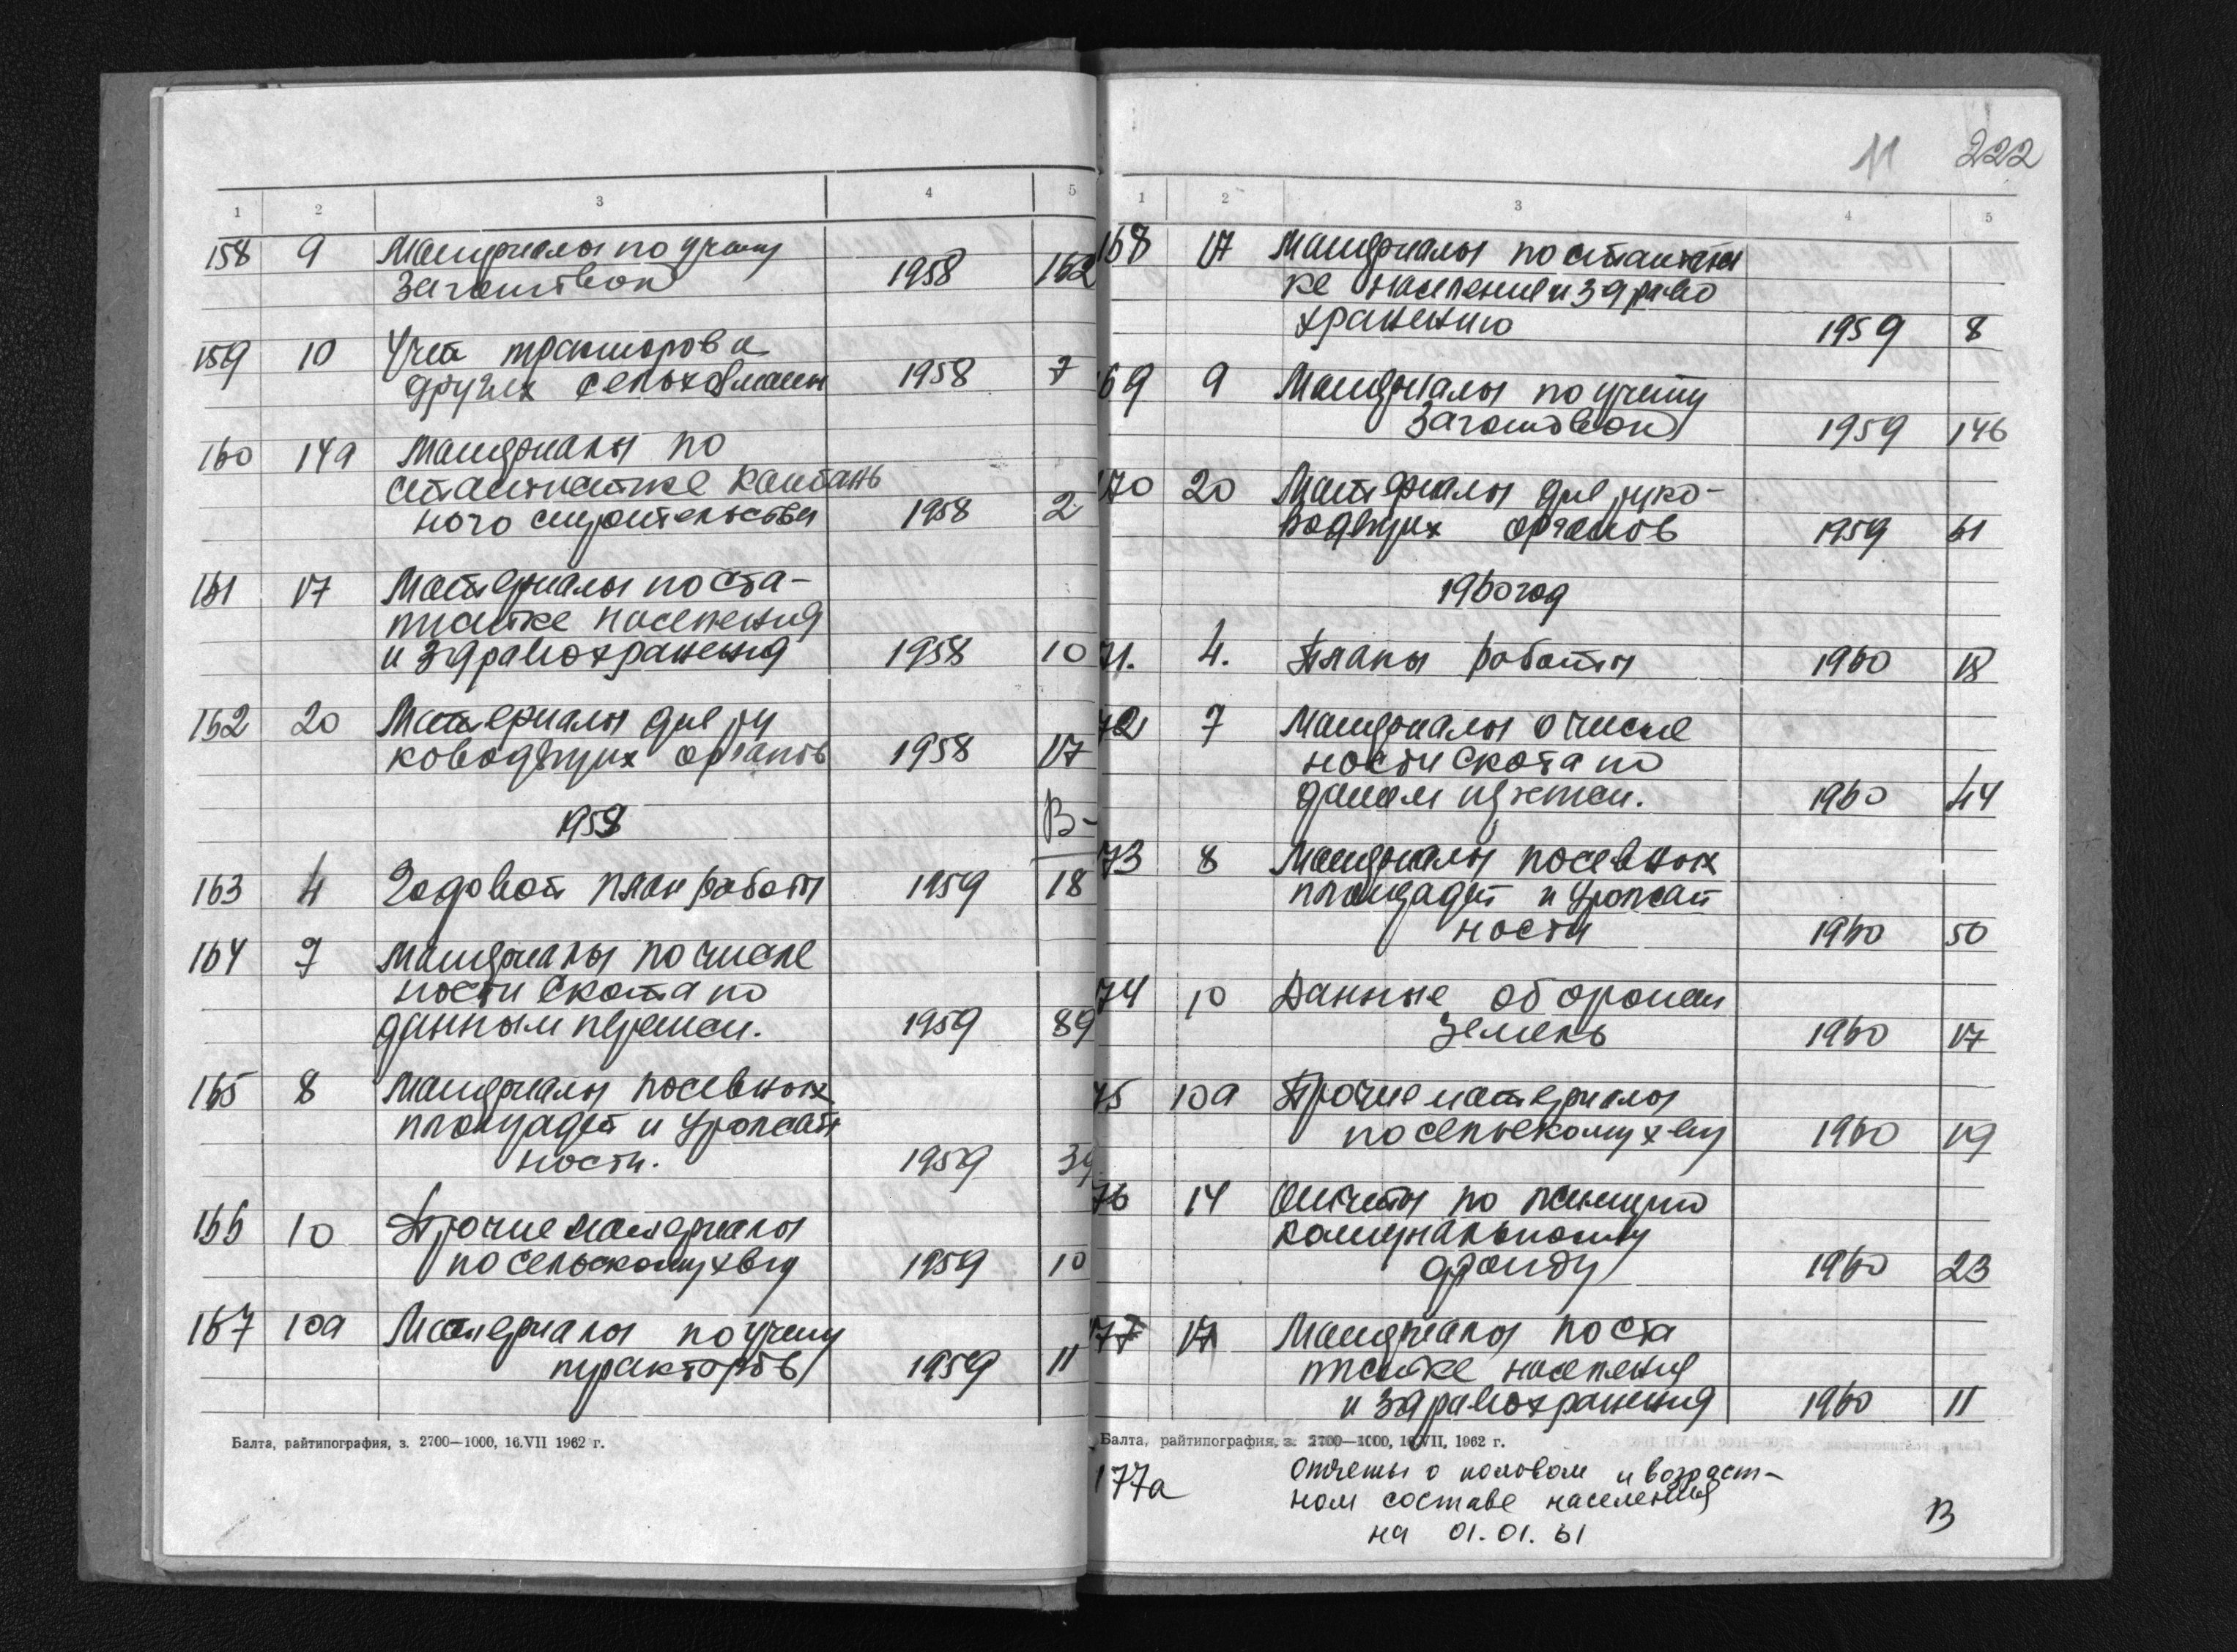 1 2 3 4 5
158 9 Материалы по учету
заготовок 1958 162
159 10 Учет тракторов и
других сельхозмашин 1958 7
160 14а Материалы по
статистике капиталь
ного строительства 1958 2
161 17 Материалы по ста-
тистике населения
и здравоохранения 1958 10
162 20 Материалы для ру
ководящих органов 1958 17
1959 В-
163 4 Годовой план работы 1959 18
164 7 Материалы по числе
ности скота по
данным переписи. 1959 89
165 8 Материалы посевных
площадей и урожай
ности. 1959 39
166 10 Прочие материалы
по сельскому хву 1959 10
167 10а Материалы по учету
тракторов 1959 11
Балта, райтипография, з. 2700—1000, 16.VII 1962 г.
11 222
1 2 3 4 5
168 17 Материалы по статисти
ке населения и здраво
хранению 1959 8
69 9 Материалы по учету
заготовок 1959 146
170 20 Материалы для руко-
водящих органов 1959 61
1960 год
71. 4. Планы работы 1960 18
72 7 Материалы о числе
ности скота по
даным переписи. 1960 44
73 8 Материалы посевных
площадей и урожай
ности 1960 50
74 10 Данные об орошаем
земель 1960 17
75 10а Прочие материалы
по сельскому х-ву 1960 19
76 14 Отчеты по жилищно
комунальному
фонду 1960 23
177 17 Материалы по ста
тистике населения
и здравохранения 1960 11
Балта, райтипография, з. 2700—1000, 16.VII, 1962 г.
177а Отчеты о половом и возраст-
ном составе населения
на 01.01.61 13